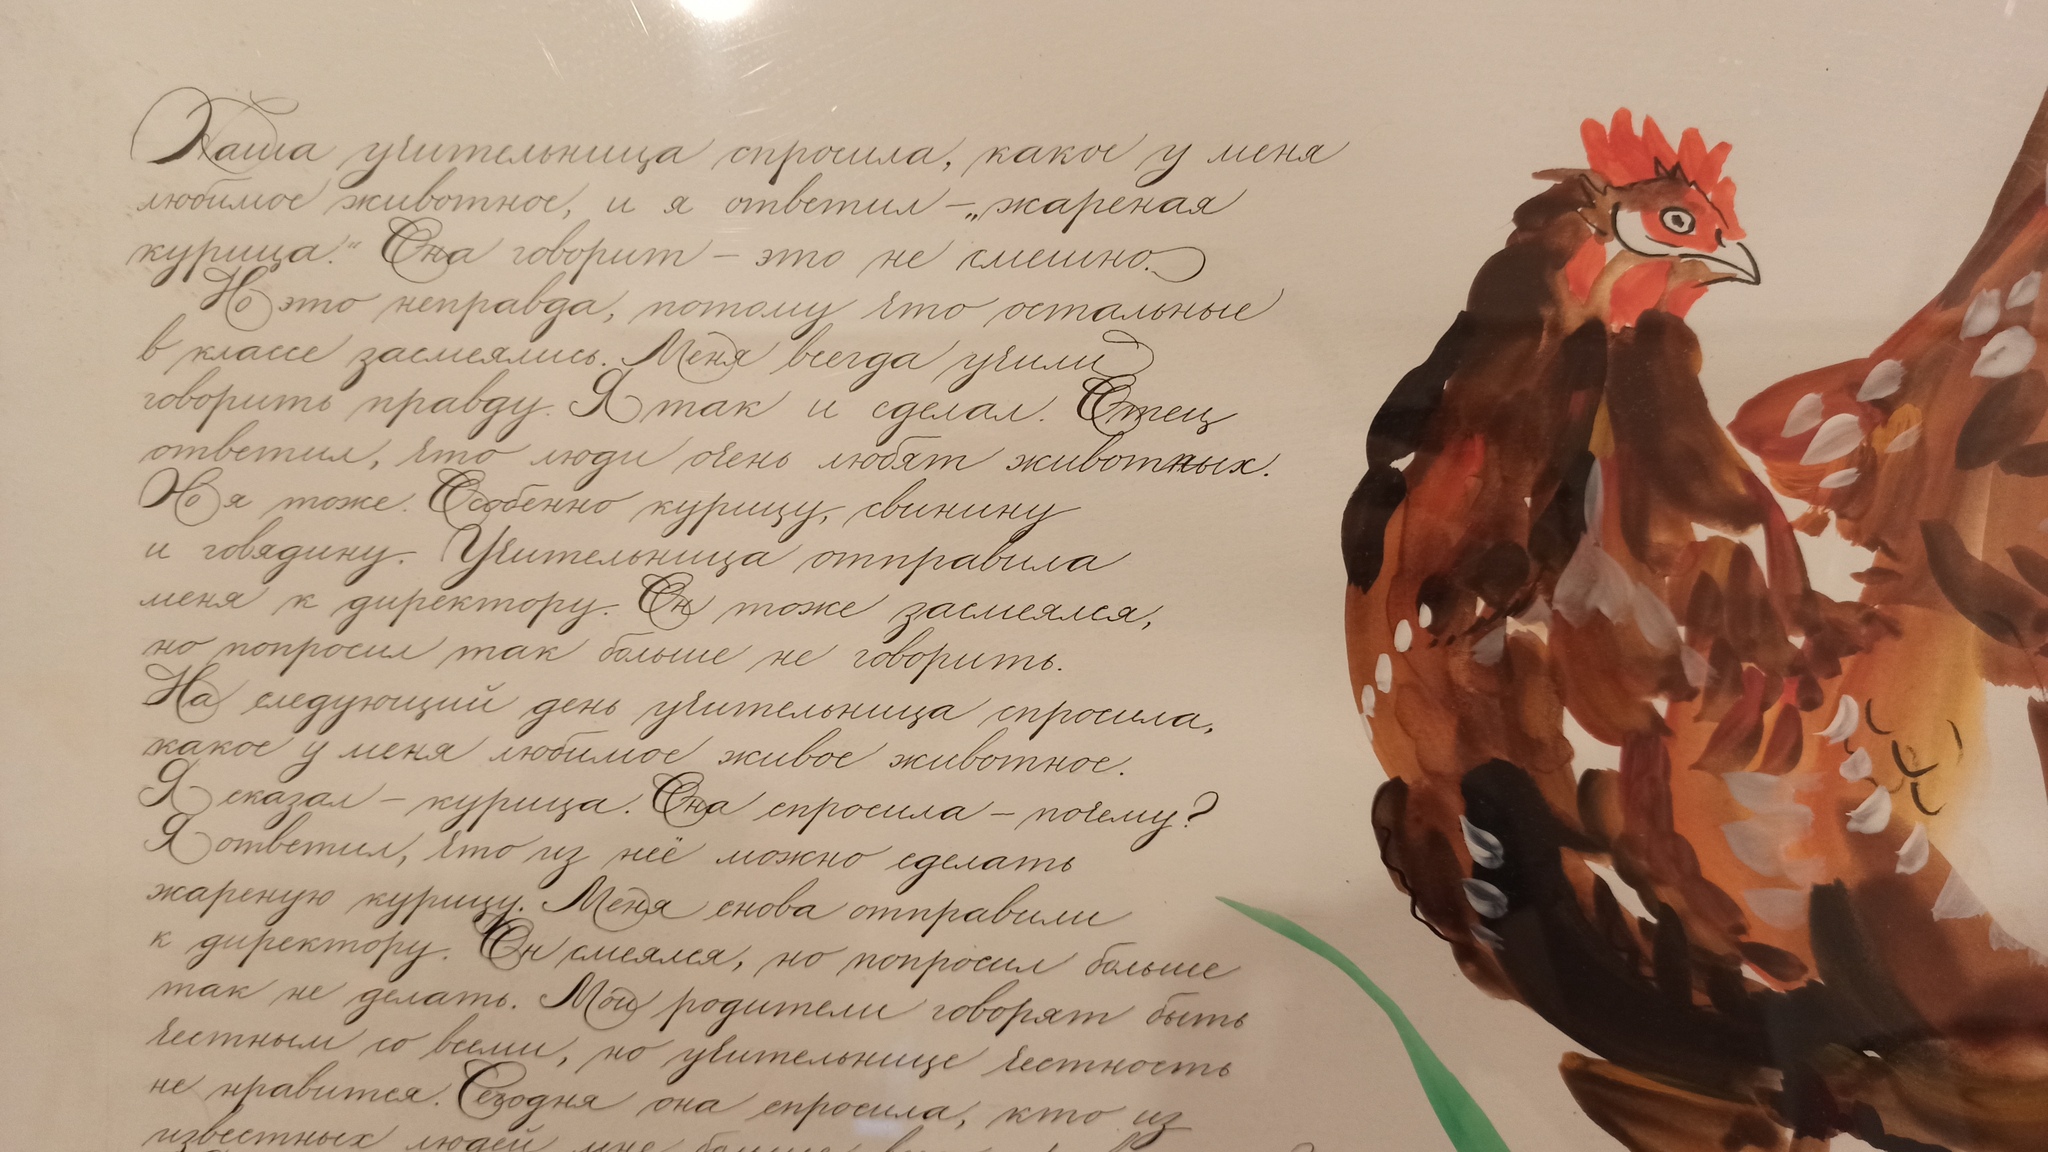 Наша учительница спросила, какое у меня
любимое животное, и я ответил – „жареная
курица.“ Она говорит – это не смешно.
Но это неправда, потому что остальные
в классе засмеялись. Меня всегда учили
говорить правду. Я так и сделал. Отец
ответил, что люди очень любят животных.
Но я тоже. Особенно курицу, свинину
и говядину. Учительница отправила
меня к директору. Он тоже засмеялся,
но попросил так больше не говорить.
На следующий день учительница спросила,
какое у меня любимое живое животное.
Я сказал – курица. Она спросила – почему?
Я ответил, что из неё можно сделать
жареную курицу. Меня снова отправили
к директору. Он смеялся, но попросил больше
так не делать. Мои родители говорят быть
честным со всеми, но учительнице честность
не нравится. Сегодня она спросила, кто из
известных людей мне больше